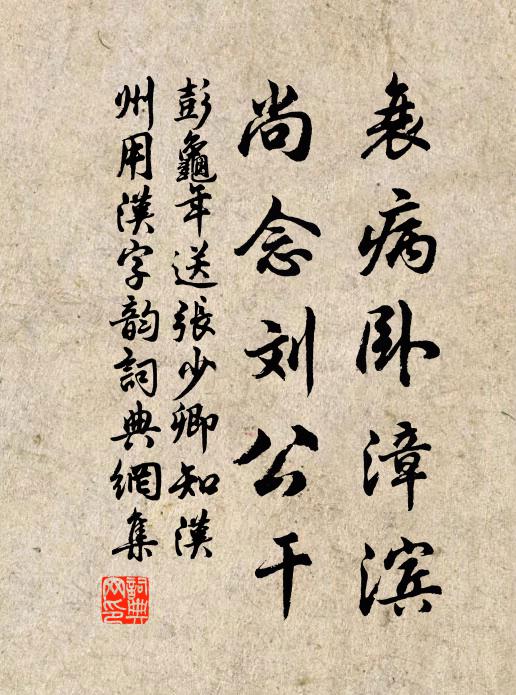 衰病卧漳滨
尚念刘公干
彭龜年送張少卿知漢
州用漢字韵詞典網集
詞典網印